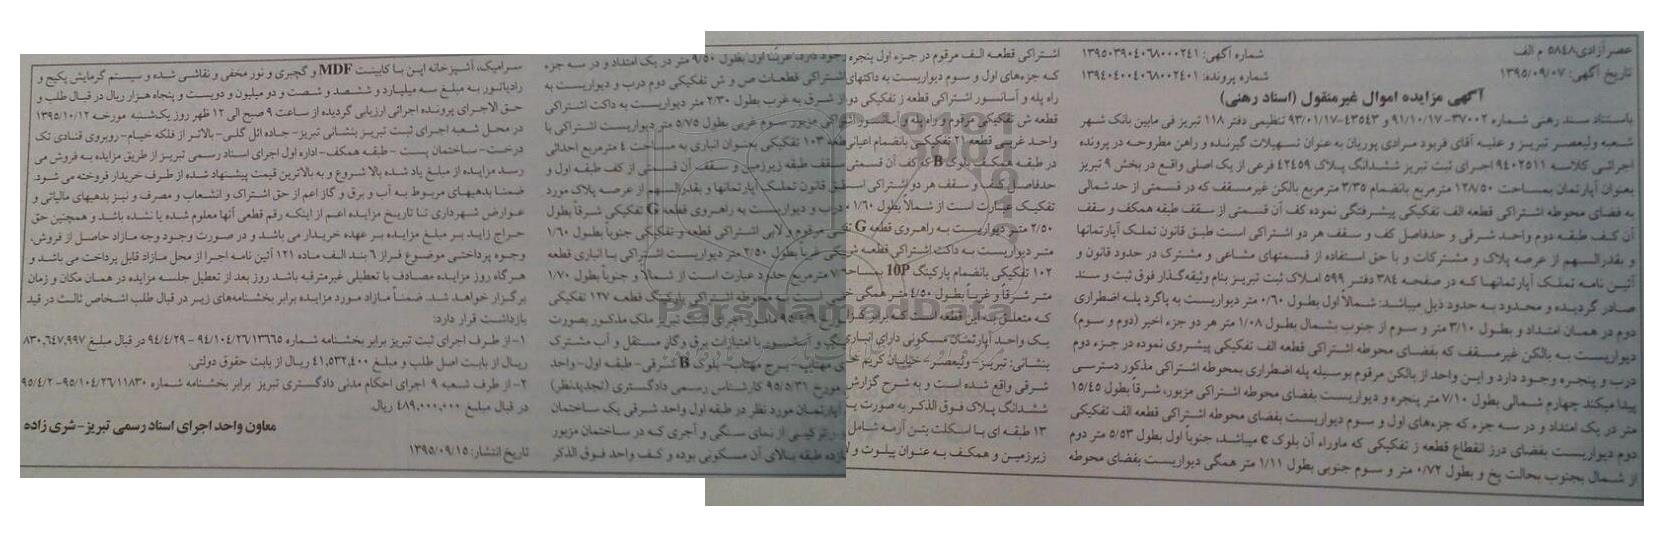 عصر آزادی: ۵۸۴۸ م الف
تاریخ آگهی: ۱۳۹۵/۰۹/۰۷
شماره آگهی: ۱۳۹۵۰۳۹۰۴۰۶۸۰۰۰۲۴۱
شماره پرونده: ۱۳۹۴۰۴۰۰۴۰۶۸۰۰۲۴۰۱
آگهی مزایده اموال غیرمنقول (اسناد رهنی)
باستناد سند رهنی شماره ۳۷۰۰۲-۹۱/۱۰/۱۷ و ۴۳۵۴۳-۹۳/۰۱/۱۷ تنظیمی دفتر ۱۱۸ تبریز فی مابین بانک شهر
شعبه ولیعصر تبریز و علیه آقای فربود مرادی پوریان به عنوان تسهیلات گیرنده و راهن مطروحه در پرونده
اجرائی کلاسه ۹۴۰۲۵۱۱ اجرای ثبت تبریز ششدانگ پلاک ۴۲۴۵۹ فرعی از یک اصلی واقع در بخش ۹ تبریز
بعنوان آپارتمان بمساحت ۱۲۸/۵۰ مترمربع بانضمام ۳/۳۵ مترمربع بالکن غیرمسقف که در قسمتی از حد شمالی
به فضای محوطه اشتراکی قطعه الف تفکیکی پیشرفتگی نموده کف آن قسمتی از سقف طبقه همکف و سقف
آن کف طبقه دوم واحد شرقی و حدفاصل کف و سقف هر دو اشتراکی است طبق قانون تملک آپارتمانها
و بقدرالسهم از عرصه پلاک و مشترکات و با حق استفاده از قسمتهای مشاعی و مشترک در حدود قانون و
آئین نامه تملک آپارتمانها که در صفحه ۳۸۴ دفتر ۵۹۹ املاک ثبت تبریز بنام وثیقه‌گذار فوق ثبت و سند
صادر گردیده و محدود به حدود ذیل میباشد: شمالاً اول بطول ۰/۶۰ متر دیواریست به پاگرد پله اضطراری
دوم در همان امتداد و بطول ۳/۱۰ متر و سوم از جنوب بشمال بطول ۱/۰۸ متر هر دو جزء اخیر (دوم و سوم)
دیواریست به بالکن غیرمسقف که بفضای محوطه اشتراکی قطعه الف تفکیکی پیشروی نموده در جزء دوم
درب و پنجره وجود دارد و این واحد از بالکن مرقوم بوسیله پله اضطراری بمحوطه اشتراکی مذکور دسترسی
پیدا میکند چهارم شمالی بطول ۷/۱۰ متر پنجره و دیواریست بفضای محوطه اشتراکی مزبور، شرقاً بطول ۱۵/۴۵
متر در یک امتداد و در سه جزء که جزءهای اول و سوم دیواریست بفضای محوطه اشتراکی قطعه الف تفکیکی
دوم دیواریست بفضای درز انقطاع قطعه ز تفکیکی که ماوراء آن بلوک c میباشد، جنوباً اول بطول ۵/۵۳ متر دوم
از شمال بجنوب بحالت پخ و بطول ۰/۷۲ متر و سوم جنوبی بطول ۱/۱۱ متر همگی دیواریست بفضای محوطه
اشتراکی قطعه الف مرقوم در جزء اول پنجره
که جزءهای اول و سوم دیواریست به داکتهای
راه پله و آسانسور اشتراکی قطعه ز تفکیکی
قطعه ش تفکیکی مرقوم و راه پله و آسانسور
واحد غربی قطعه ۲۱ تفکیکی بانضمام اعیانی
در طبقه همکف بلوک B که کف آن قسمتی
حدفاصل کف و سقف هر دو اشتراکی است
تفکیک عبارت است از شمالاً بطول ۱/۶۰
۲/۵۰ متر دیواریست به راهروی قطعه G
متر دیواریست به داکت اشتراکی قطعه
۱۰۲ تفکیکی بانضمام پارکینگ 10P بمساحت
متر شرقاً و غرباً بطول ۴/۵۰ متر همگی
که متعلق به این قطعه است که برابر گزارش
یک واحد آپارتمان مسکونی دارای انباری
بنشانی: تبریز- ولیعصر- خیابان کریم خان
شرقی واقع شده است و به شرح گزارش
ششدانگ پلاک فوق الذکر به صورت یک
۱۳ طبقه ای با اسکلت بتن آرمه شامل
زیرزمین و همکف به عنوان پیلوت و
وجود دارد، غرباً اول بطول ۹/۵۰ متر در یک امتداد و در سه جزء
اشتراکی قطعات ص و ش تفکیکی دوم درب و دیواریست به
از شرق به غرب بطول ۲/۳۰ متر دیواریست به داکت اشتراکی
اشتراکی مزبور سوم غربی بطول ۵/۷۵ متر دیواریست اشتراکی با
قطعه ۱۰۳ تفکیکی بعنوان انباری به مساحت ۴ مترمربع احداثی
سقف طبقه زیرزمین و سقف آن قسمتی از کف طبقه اول و
طبق قانون تملک آپارتمانها و بقدرالسهم از عرصه پلاک مورد
درب و دیواریست به راهروی قطعه G تفکیکی شرقاً بطول
مرقوم و لابی اشتراکی قطعه و تفکیکی جنوباً بطول ۱/۶۰
غرباً بطول ۲/۵۰ متر دیواریست اشتراکی با انباری قطعه
مترمربع حدود عبارت است از شمالاً و جنوباً بطول ۱/۷۰
خطی است به محوطه اشتراکی پارکینگ قطعه ۱۲۷ تفکیکی
مامور اجرای ثبت تبریز ملک مذکور بصورت
و آسانسور با امتیازات برق و گاز مستقل و آب مشترک
مهتاب- برج مهتاب- بلوک B شرقی- طبقه اول- واحد
مورخ ۹۵/۵/۳۱ کارشناس رسمی دادگستری (تجدیدنظر)
آپارتمان مورد نظر در طبقه اول واحد شرقی یک ساختمان
ترکیبی از نمای سنگی و آجری که در ساختمان مزبور
طبقه بالای آن مسکونی بوده و کف واحد فوق الذکر
سرامیک، آشپزخانه اپن با کابینت MDF و گچبری و نور مخفی و نقاشی شده و سیستم گرمایش پکیج و
رادیاتور به مبلغ سه میلیارد و ششصد و شصت و دو میلیون و دویست و پنجاه هزار ریال در قبال طلب و
حق الاجرای پرونده اجرائی ارزیابی گردیده از ساعت ۹ صبح الی ۱۲ ظهر روز یک‌شنبه مورخه ۱۳۹۵/۱۰/۱۲
در محل شعبه اجرای ثبت تبریز بنشانی تبریز- جاده ائل گلی- بالاتر از فلکه خیام- روبروی قنادی تک
درخت- ساختمان پست - طبقه همکف- اداره اول اجرای اسناد رسمی تبریز از طریق مزایده به فروش می
رسد مزایده از مبلغ یاد شده بالا شروع و به بالاترین قیمت پیشنهاد شده از طرف خریدار فروخته می شود.
ضمنا بدهیهای مربوط به آب و برق و گاز اعم از حق اشتراک و انشعاب و مصرف و نیز بدهیهای مالیاتی و
عوارض شهرداری تا تاریخ مزایده اعم از اینکه رقم قطعی آنها معلوم شده یا نشده باشد و همچنین حق
حراج زاید بر مبلغ مزایده بر عهده خریدار می باشد و در صورت وجود وجه مازاد حاصل از فروش،
وجوه پرداختی موضوع فراز ۶ بند الف ماده ۱۲۱ آئین نامه اجرا از محل مازاد قابل پرداخت می باشد و
هرگاه روز مزایده مصادف با تعطیلی غیرمترقبه باشد روز بعد از تعطیل جلسه مزایده در همان مکان و زمان
برگزار خواهد شد. ضمناً مازاد مورد مزایده برابر بخشنامه‌های زیر در قبال طلب اشخاص ثالث در قید
بازداشت قرار دارد:
۱- از طرف اجرای ثبت تبریز برابر بخشنامه شماره ۹۴/۱۰۴/۲۶/۱۳۶۶۵ - ۹۴/۴/۲۹ در قبال مبلغ ۸۳۰,۶۴۷,۹۹۷
ریال از بابت اصل طلب و مبلغ ۴۱,۵۳۲,۴۰۰ ریال از بابت حقوق دولتی.
۲- از طرف شعبه ۹ اجرای احکام مدنی دادگستری تبریز برابر بخشنامه شماره ۹۵/۱۰۴/۲۶/۱۱۸۳۰-۹۵/۴/۲
در قبال مبلغ ۴۸۹,۰۰۰,۰۰۰ ریال.
معاون واحد اجرای اسناد رسمی تبریز-شری زاده
تاریخ انتشار: ۱۳۹۵/۰۹/۱۵
ParsNamadData